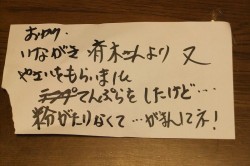 おかり.
いながき 斉木さんより 又
やさいをもらいました
てんぷらをしたけど…
粉がたりなくて…がまんしてネ!